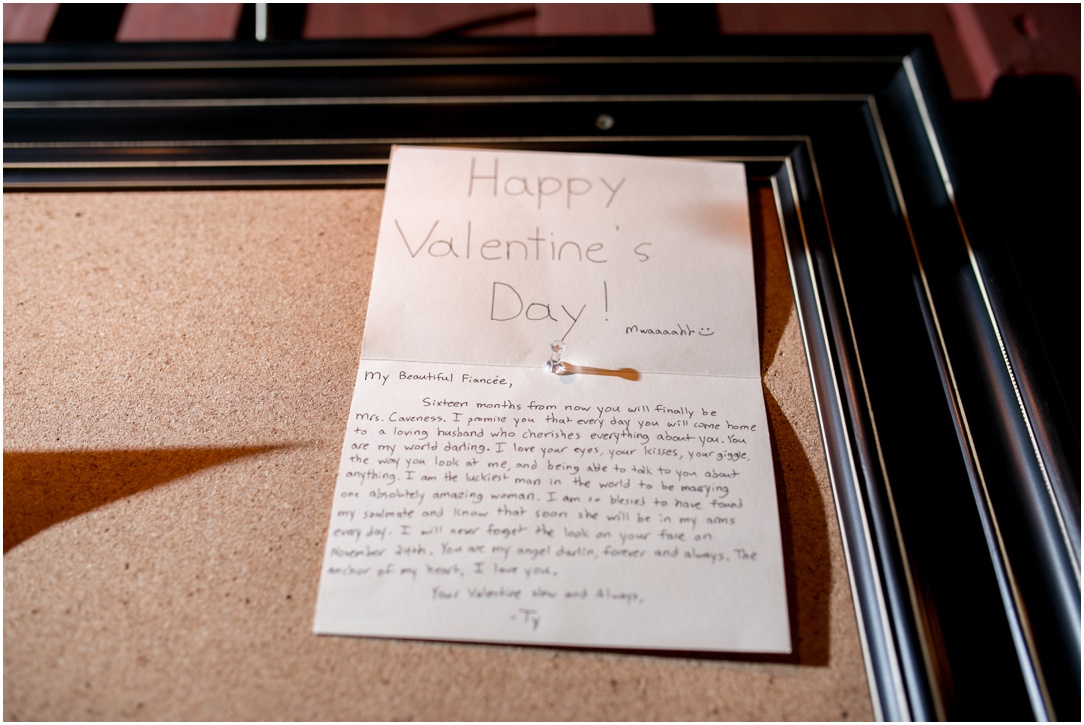 Happy
Valentine's
Day!
Mwaaaahh
My Beautiful Fiancée,
Sixteen months from now you will finally be
Mrs. Caveness. I promise you that every day you will come home
to a loving husband who cherishes everything about you. You
are my world darling. I love your eyes, your kisses, your giggle,
the way you look at me, and being able to talk to you about
anything. I am the luckiest man in the world to be marrying
one absolutely amazing woman. I am so blessed to have found
my soulmate and know that soon she will be in my arms
every day. I will never forget the look on your face on
November 24th. You are my angel darlin, forever and always. The
anchor of my heart, I love you.
Your Valentine Now and Always,
-Ty